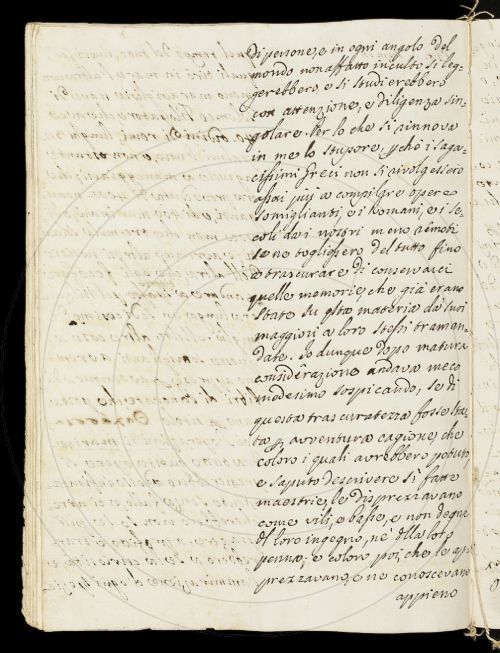 di persone, e in ogni angolo del
mondo non affatto inculto si leg=
gerebbero, e si studierebbero
con attenzione, e diligenza sin=
golare. Per lo che si rinnova
in me lo stupore, pchè i saga=
cissimi Greci non si rivolgessero
assai più a compilare opere
somiglianti, e i Romani, e i se=
coli da i nostri meno remoti
se ne togliessero del tutto fino
a trascurare di conservarci
quelle memorie, che già erano
state su qsta materia da suoi
maggiori a loro stessi traman=
date. Io dunque dopo matura
considerazione andava meco
medesimo sospicando, se di
questa trascuratezza fosse sta=
ta p avventura cagione, che
coloro i quali avrebbero potuto,
e saputo descrivere sì fatte
maestrie, le disprezzavano
come vili, e basse, e non degne
del loro ingegno, nè della loro
penna; e coloro poi, che le ap=
prezzavano, e ne conoscevano
appieno